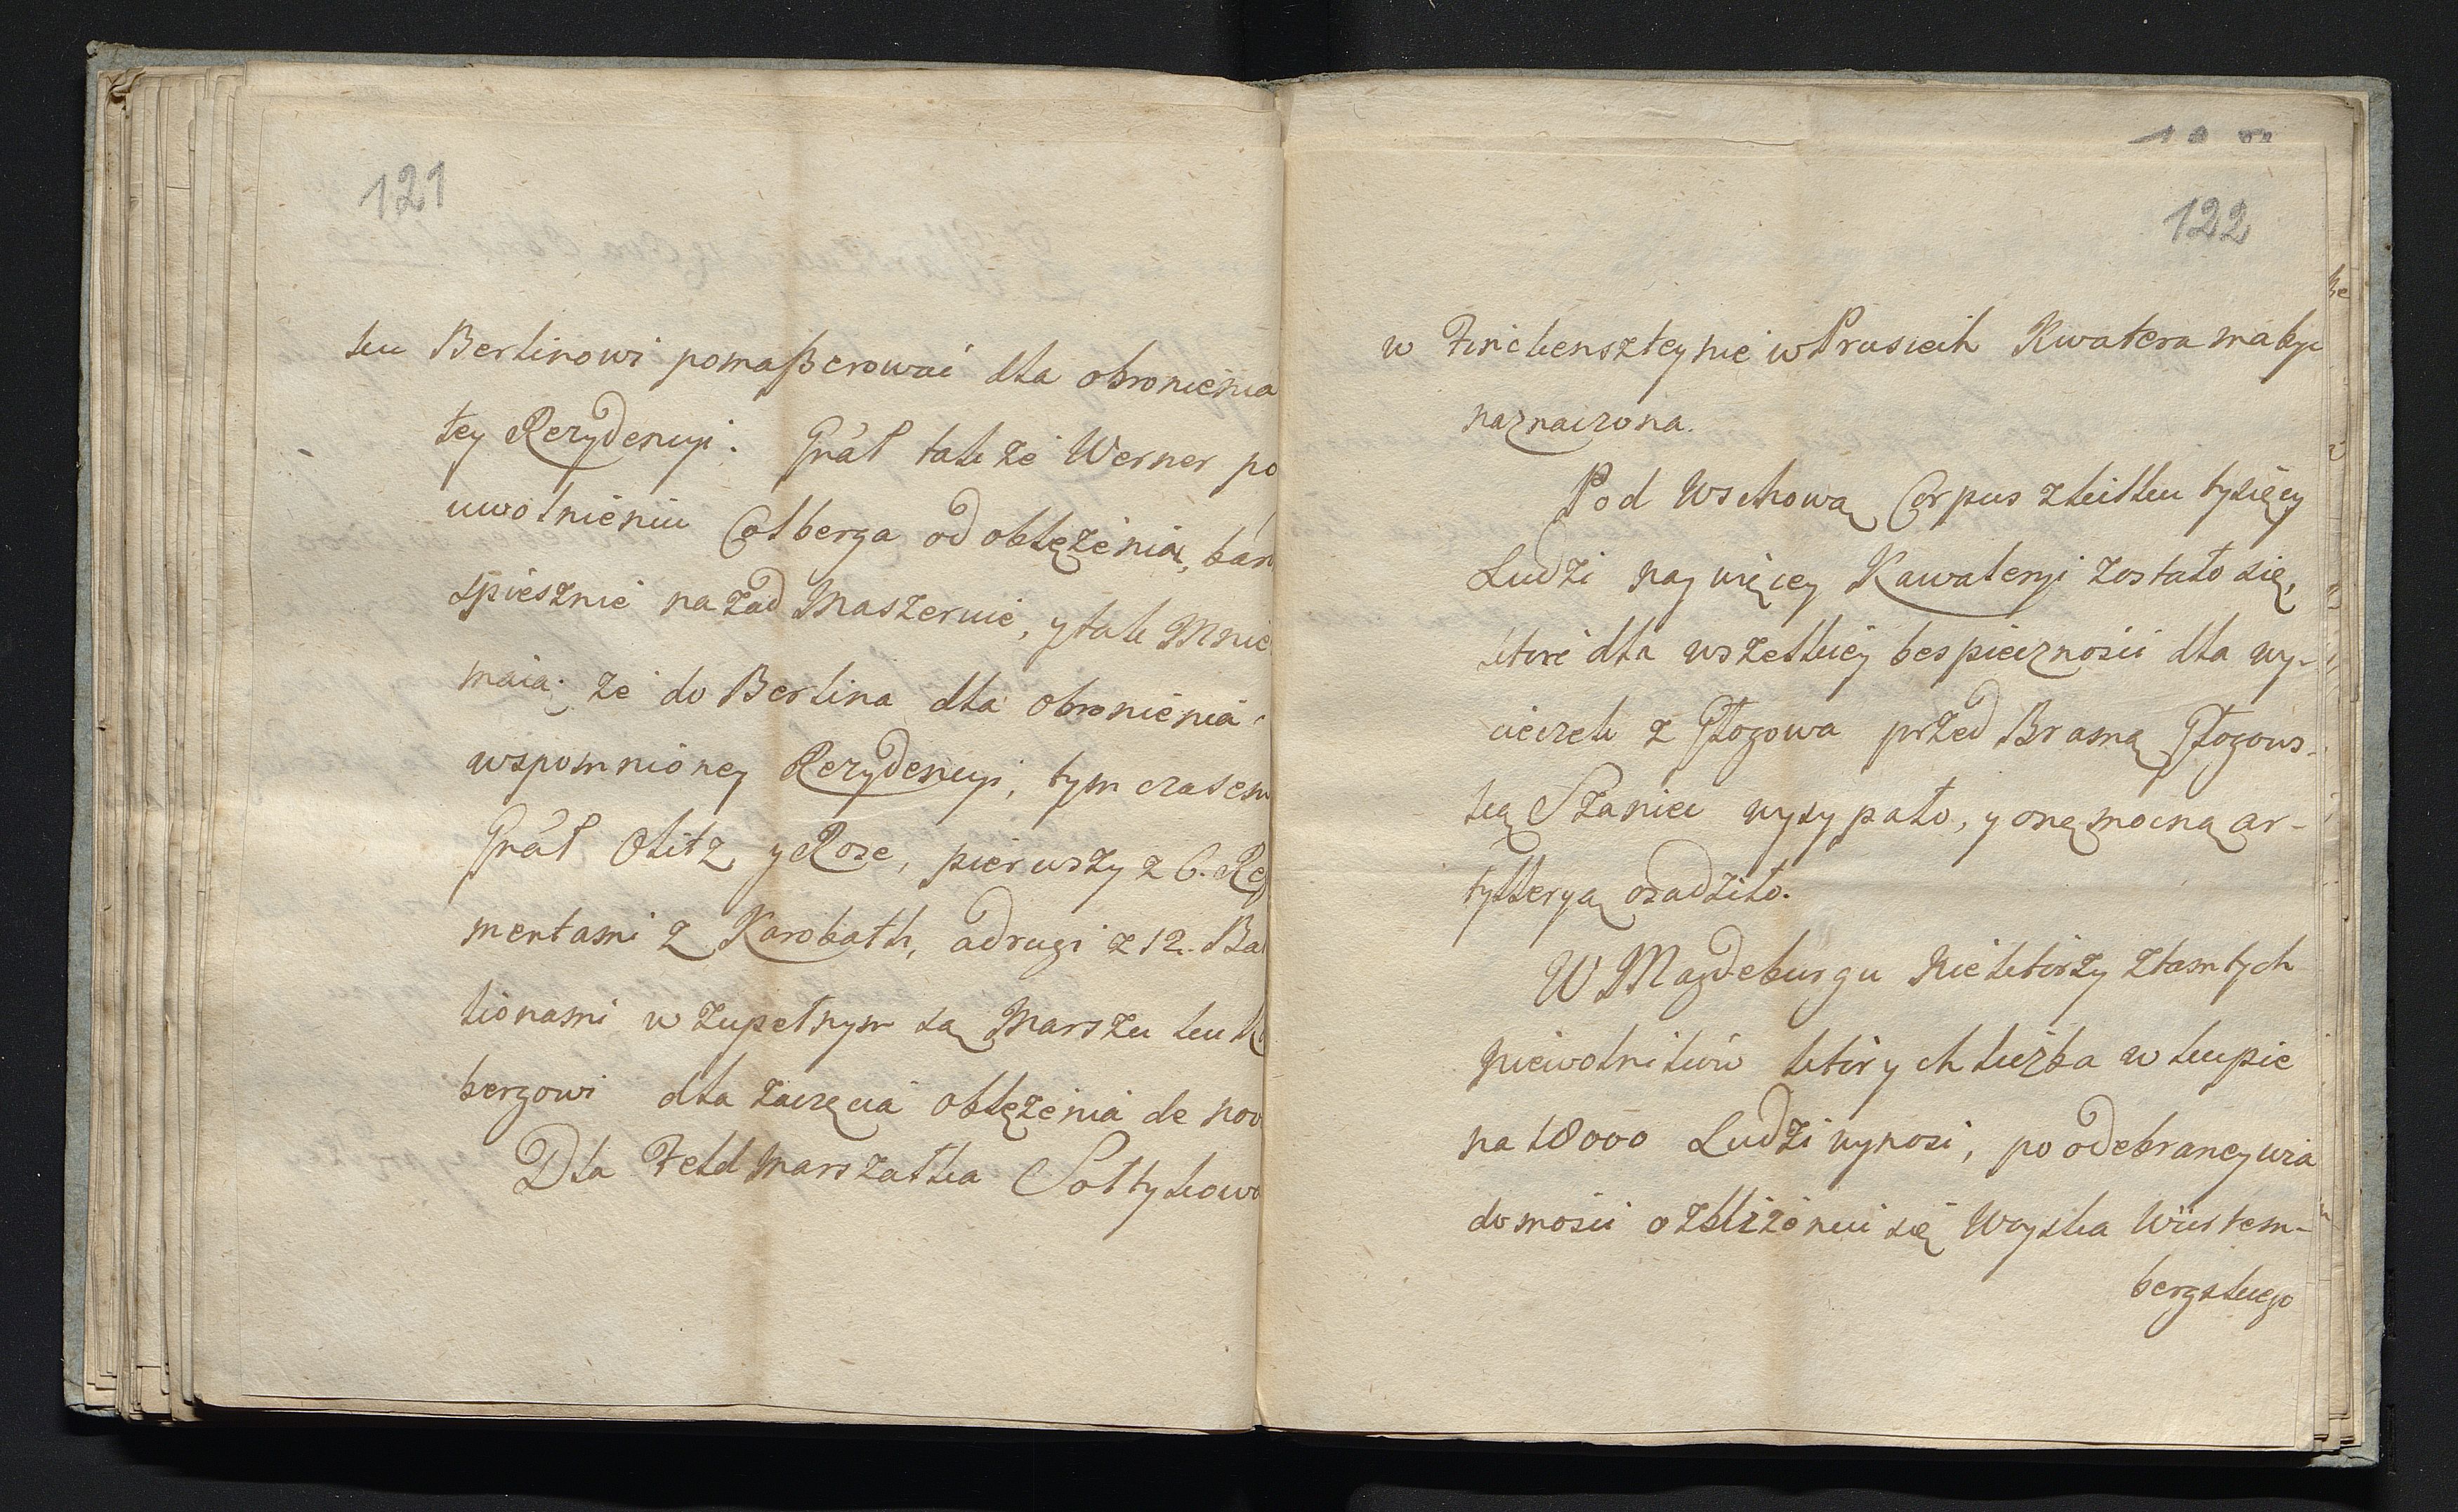 121
ku Berlinowi pomaßerować dla obronienia
tey Rezydencyi. Gnãł także Werner po
uwolnieniu Colberga od oblężenia, bar
spiesznie nazad Maszeruie, y tak Mnie
maią; że do Berlina dla obronienia
wspomnioney Rezydencyi, tym czasem
Gnãł Olitz y Roze, pierwszy z 6. Reg
mentami z Karobath, a drugi z 12. Bat
lionami w zupełnym są Marszu ku Kol
bergowi dla zaczęcia oblężenia de novo
Dla Feld Marszałka Sołtykowa
122
w Finckensteynie w Prusiech Kwatera ma być
naznaczona.
Pod Wschową Corpus z kilku tysięcy
Ludzi nay więcey Kawaleryi zostało się,
które dla wszelkiey bespieczności dla wy-
cieczek z Głogowa przed Bramą Głogows-
ką Szaniec wysypało, y onę mocną ar-
tylleryą osadziło.
W Magdeburgu niektórzy z tamtych
niewolników których liczba w kupie
na 18000 Ludzi wynosi, po odebraney wia
domości o zbliżeniu się Woyska Würtem-
bergskiego